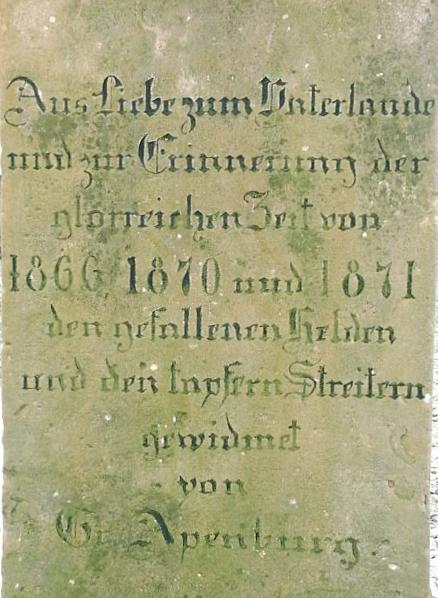 Aus Liebe zum Vaterlande
und zur Erinnerung der
glorreichen Zeit von
1866 1870 und 1871
den gefallenen Helden
und den tapfern Streitern
gewidmet
von
Gr. Apenburg.